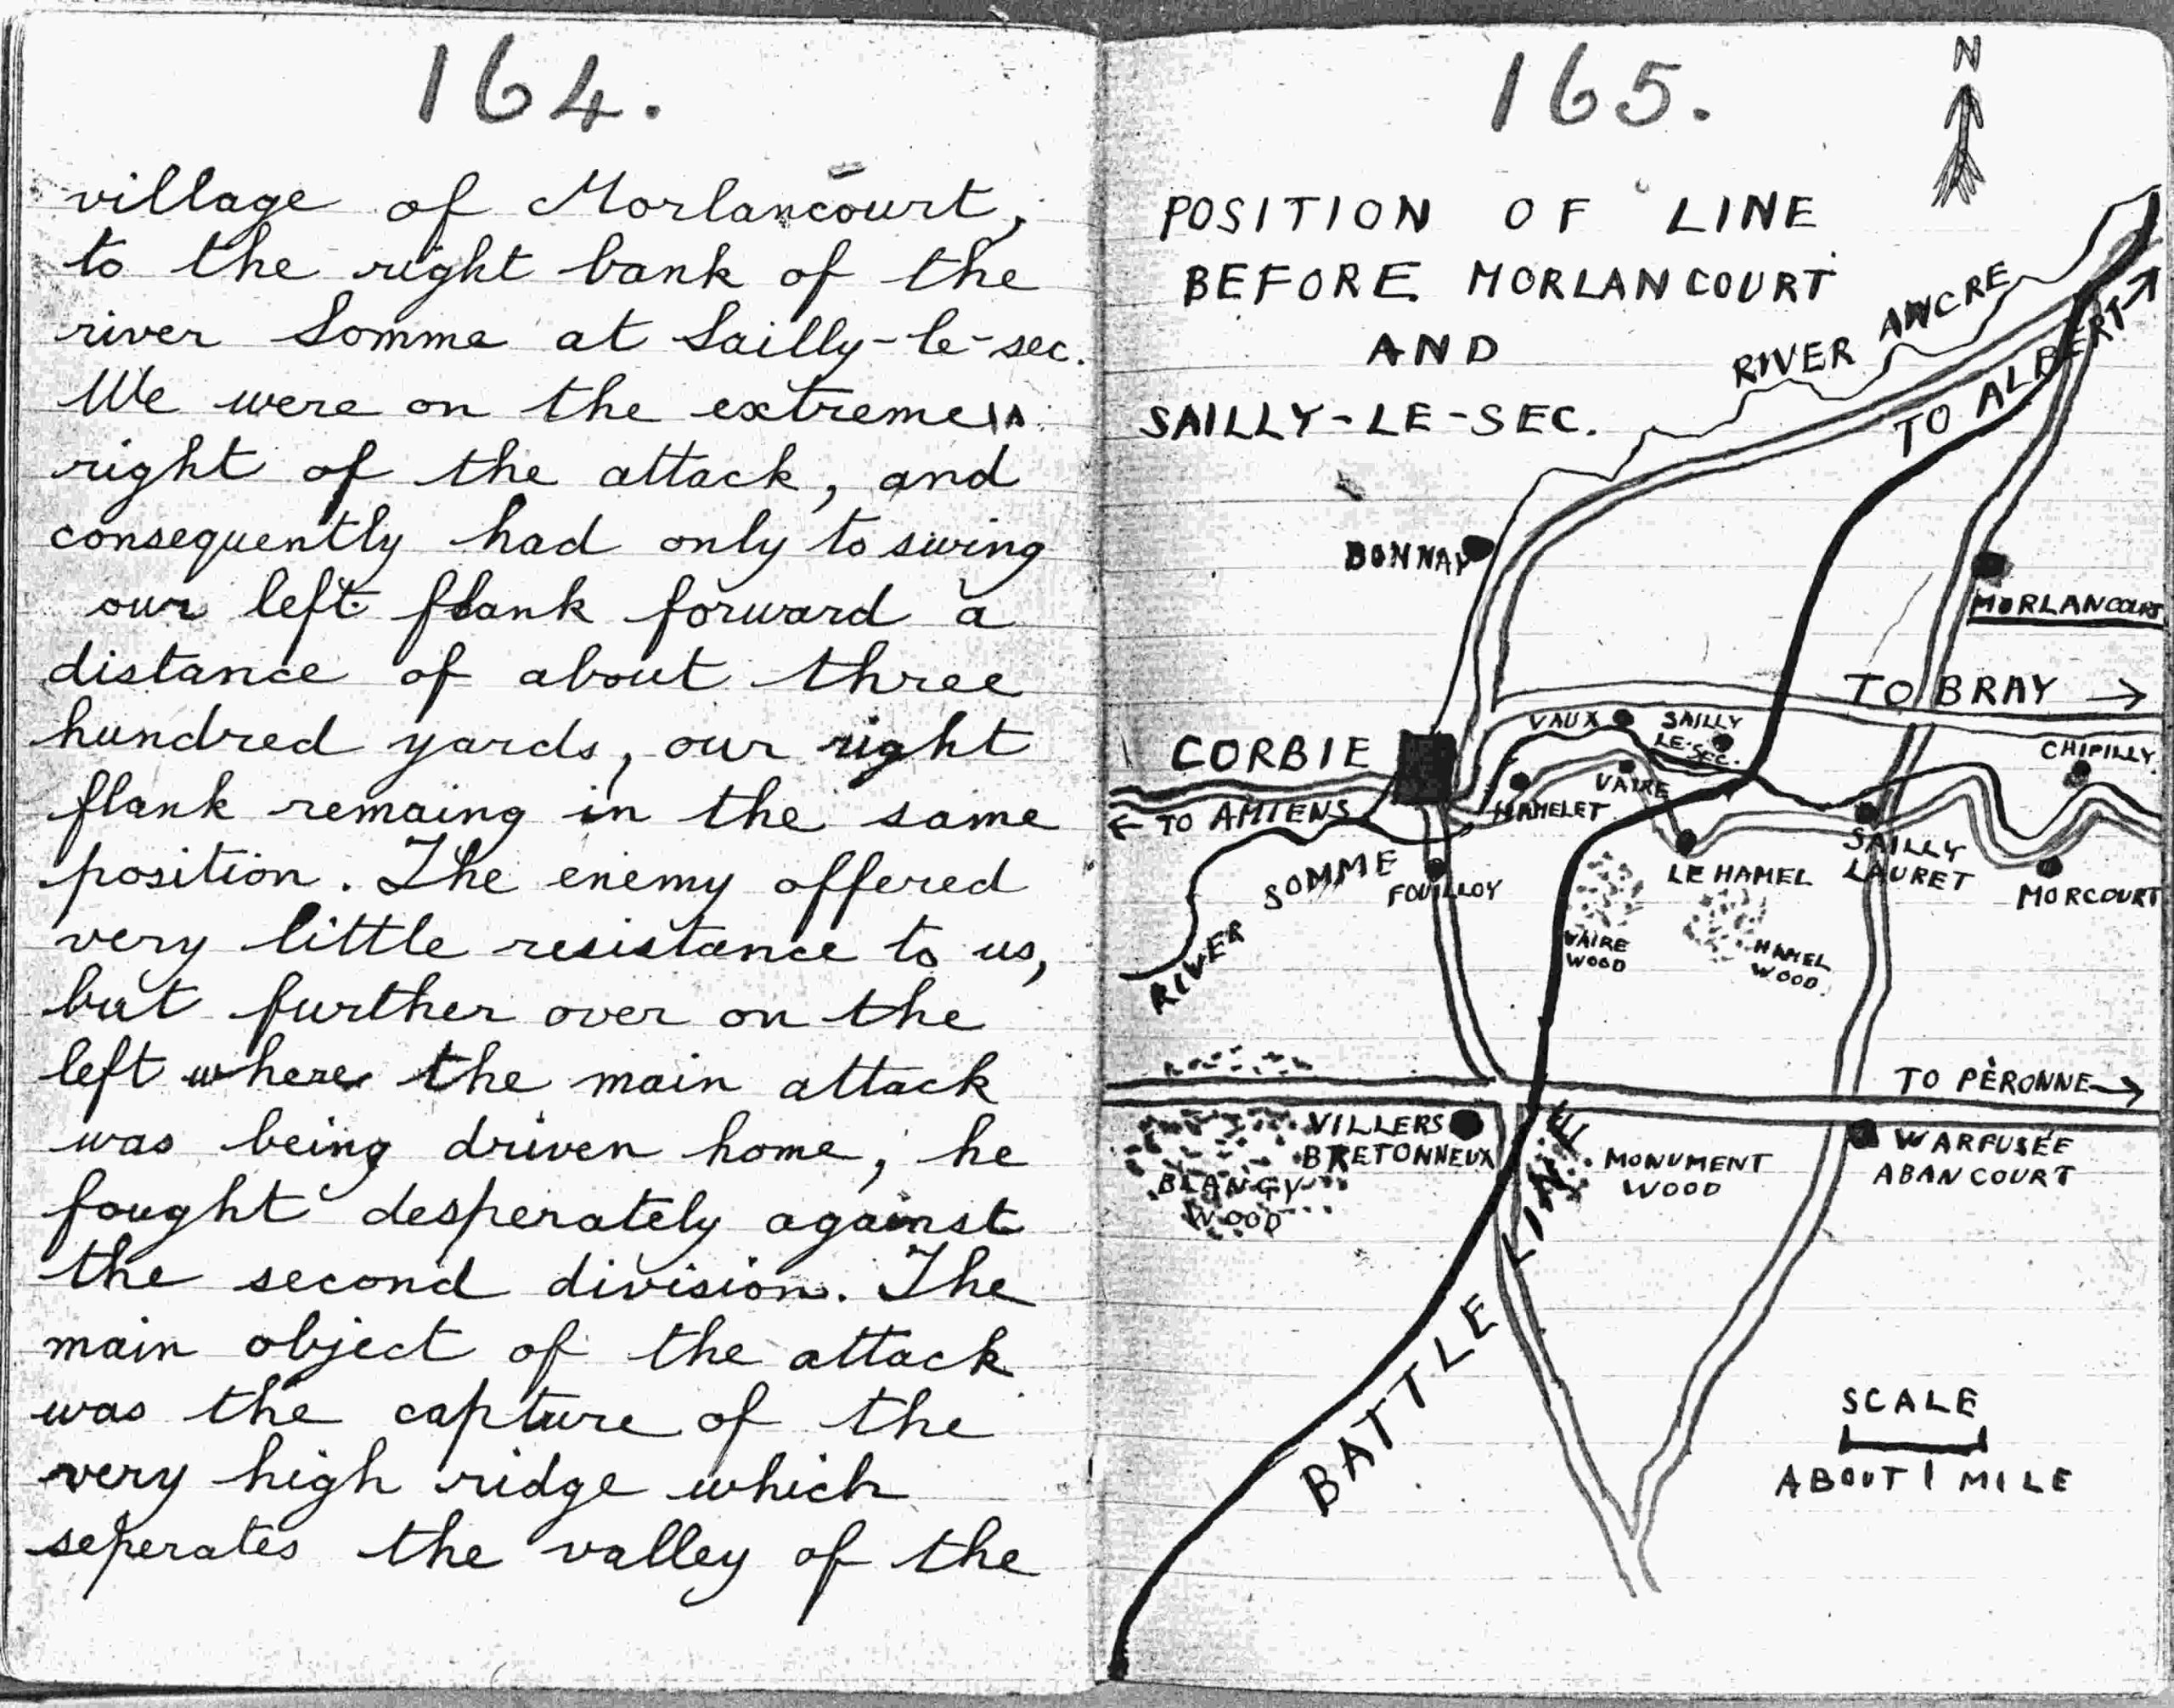 164.
village of Morlancourt,
to the right bank of the
river Somme at Sailly-le-sec.
We were on the extreme
right of the attack, and
consequently had only to swing
our left flank forward a
distance of about three
hundred yards, our right
flank remaing in the same
position. The enemy offered
very little resistance to us,
but further over on the
left where the main attack
was being driven home, he
fought desperately against
the second division. The
main object of the attack
was the capture of the
very high ridge which
seperates the valley of the
165.
N
POSITION OF LINE
BEFORE MORLANCOURT
AND
SAILLY-LE-SEC.
RIVER ANCRE
TO ALBERT
BONNAY
MORLANCOURT
TO BRAY
VAUX
SAILLY
LE-SEC.
CHIPILLY.
CORBIE
VAIRE
HAMELET
TO AMIENS
SAILLY
LAURET
LE HAMEL
MORCOURT
RIVER SOMME
FOUILLOY
VAIRE
WOOD
HAMEL
WOOD.
TO PÈRONNE
VILLERS
BRETONNEUX
BLANGY
WOOD
MONUMENT
WOOD
WARFUSÉE
ABANCOURT
BATTLE LINE
SCALE
ABOUT 1 MILE